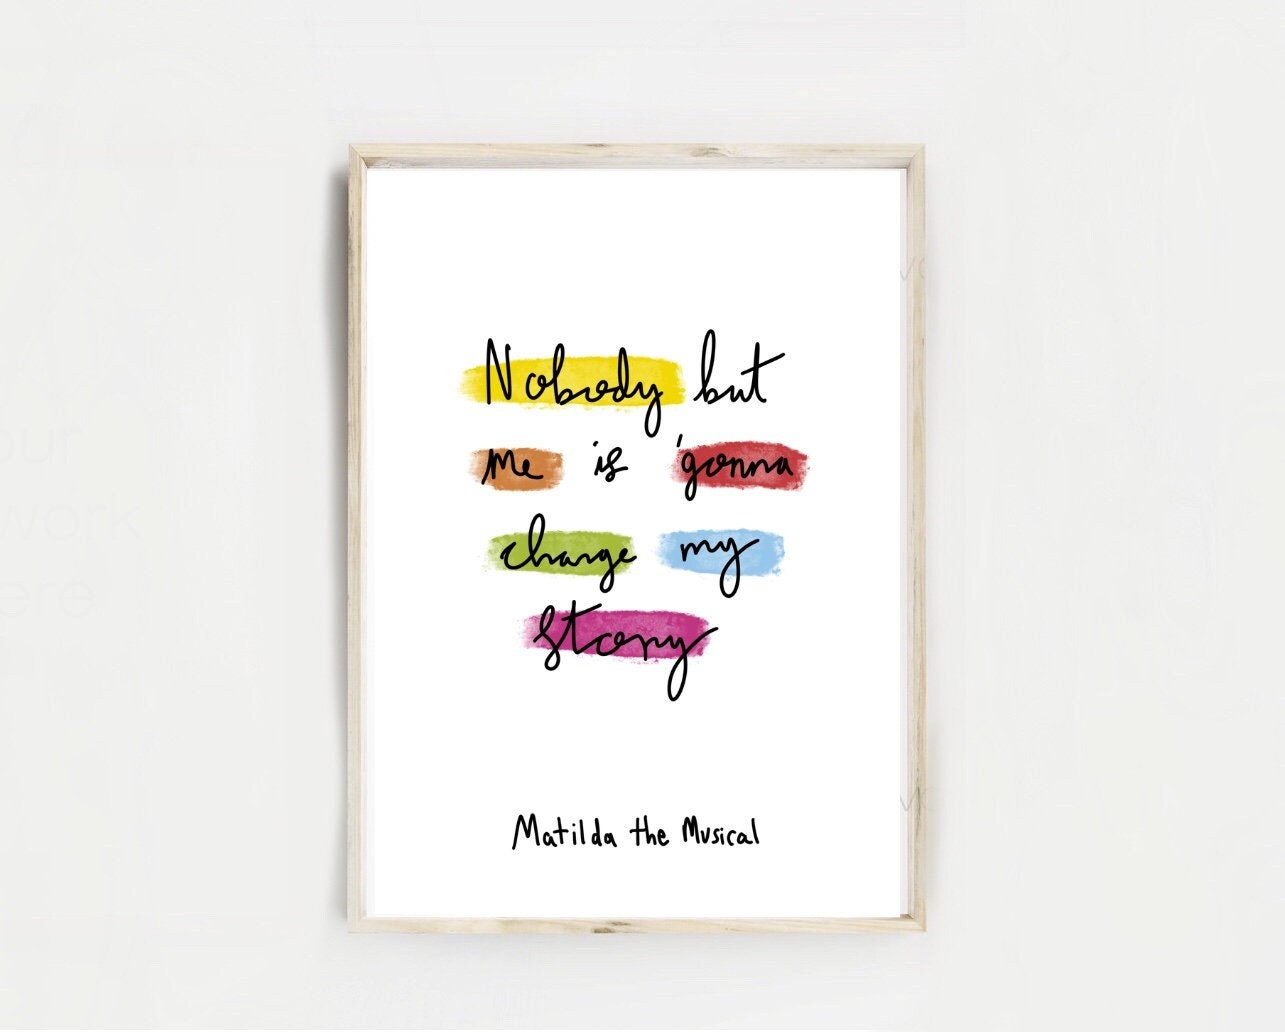 Nobody but
me is 'gonna
change my
story
Matilda the Musical
our
work
ere